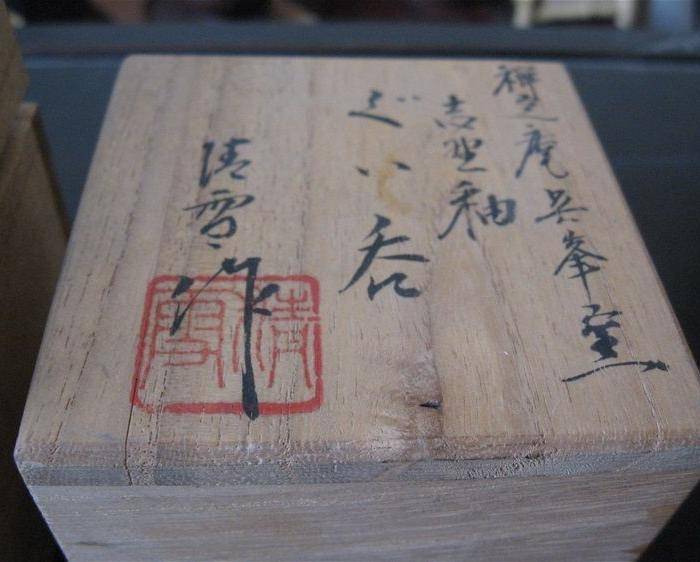 禅之庵呉峯窯
志野釉
ぐい呑
清雪作
清雪